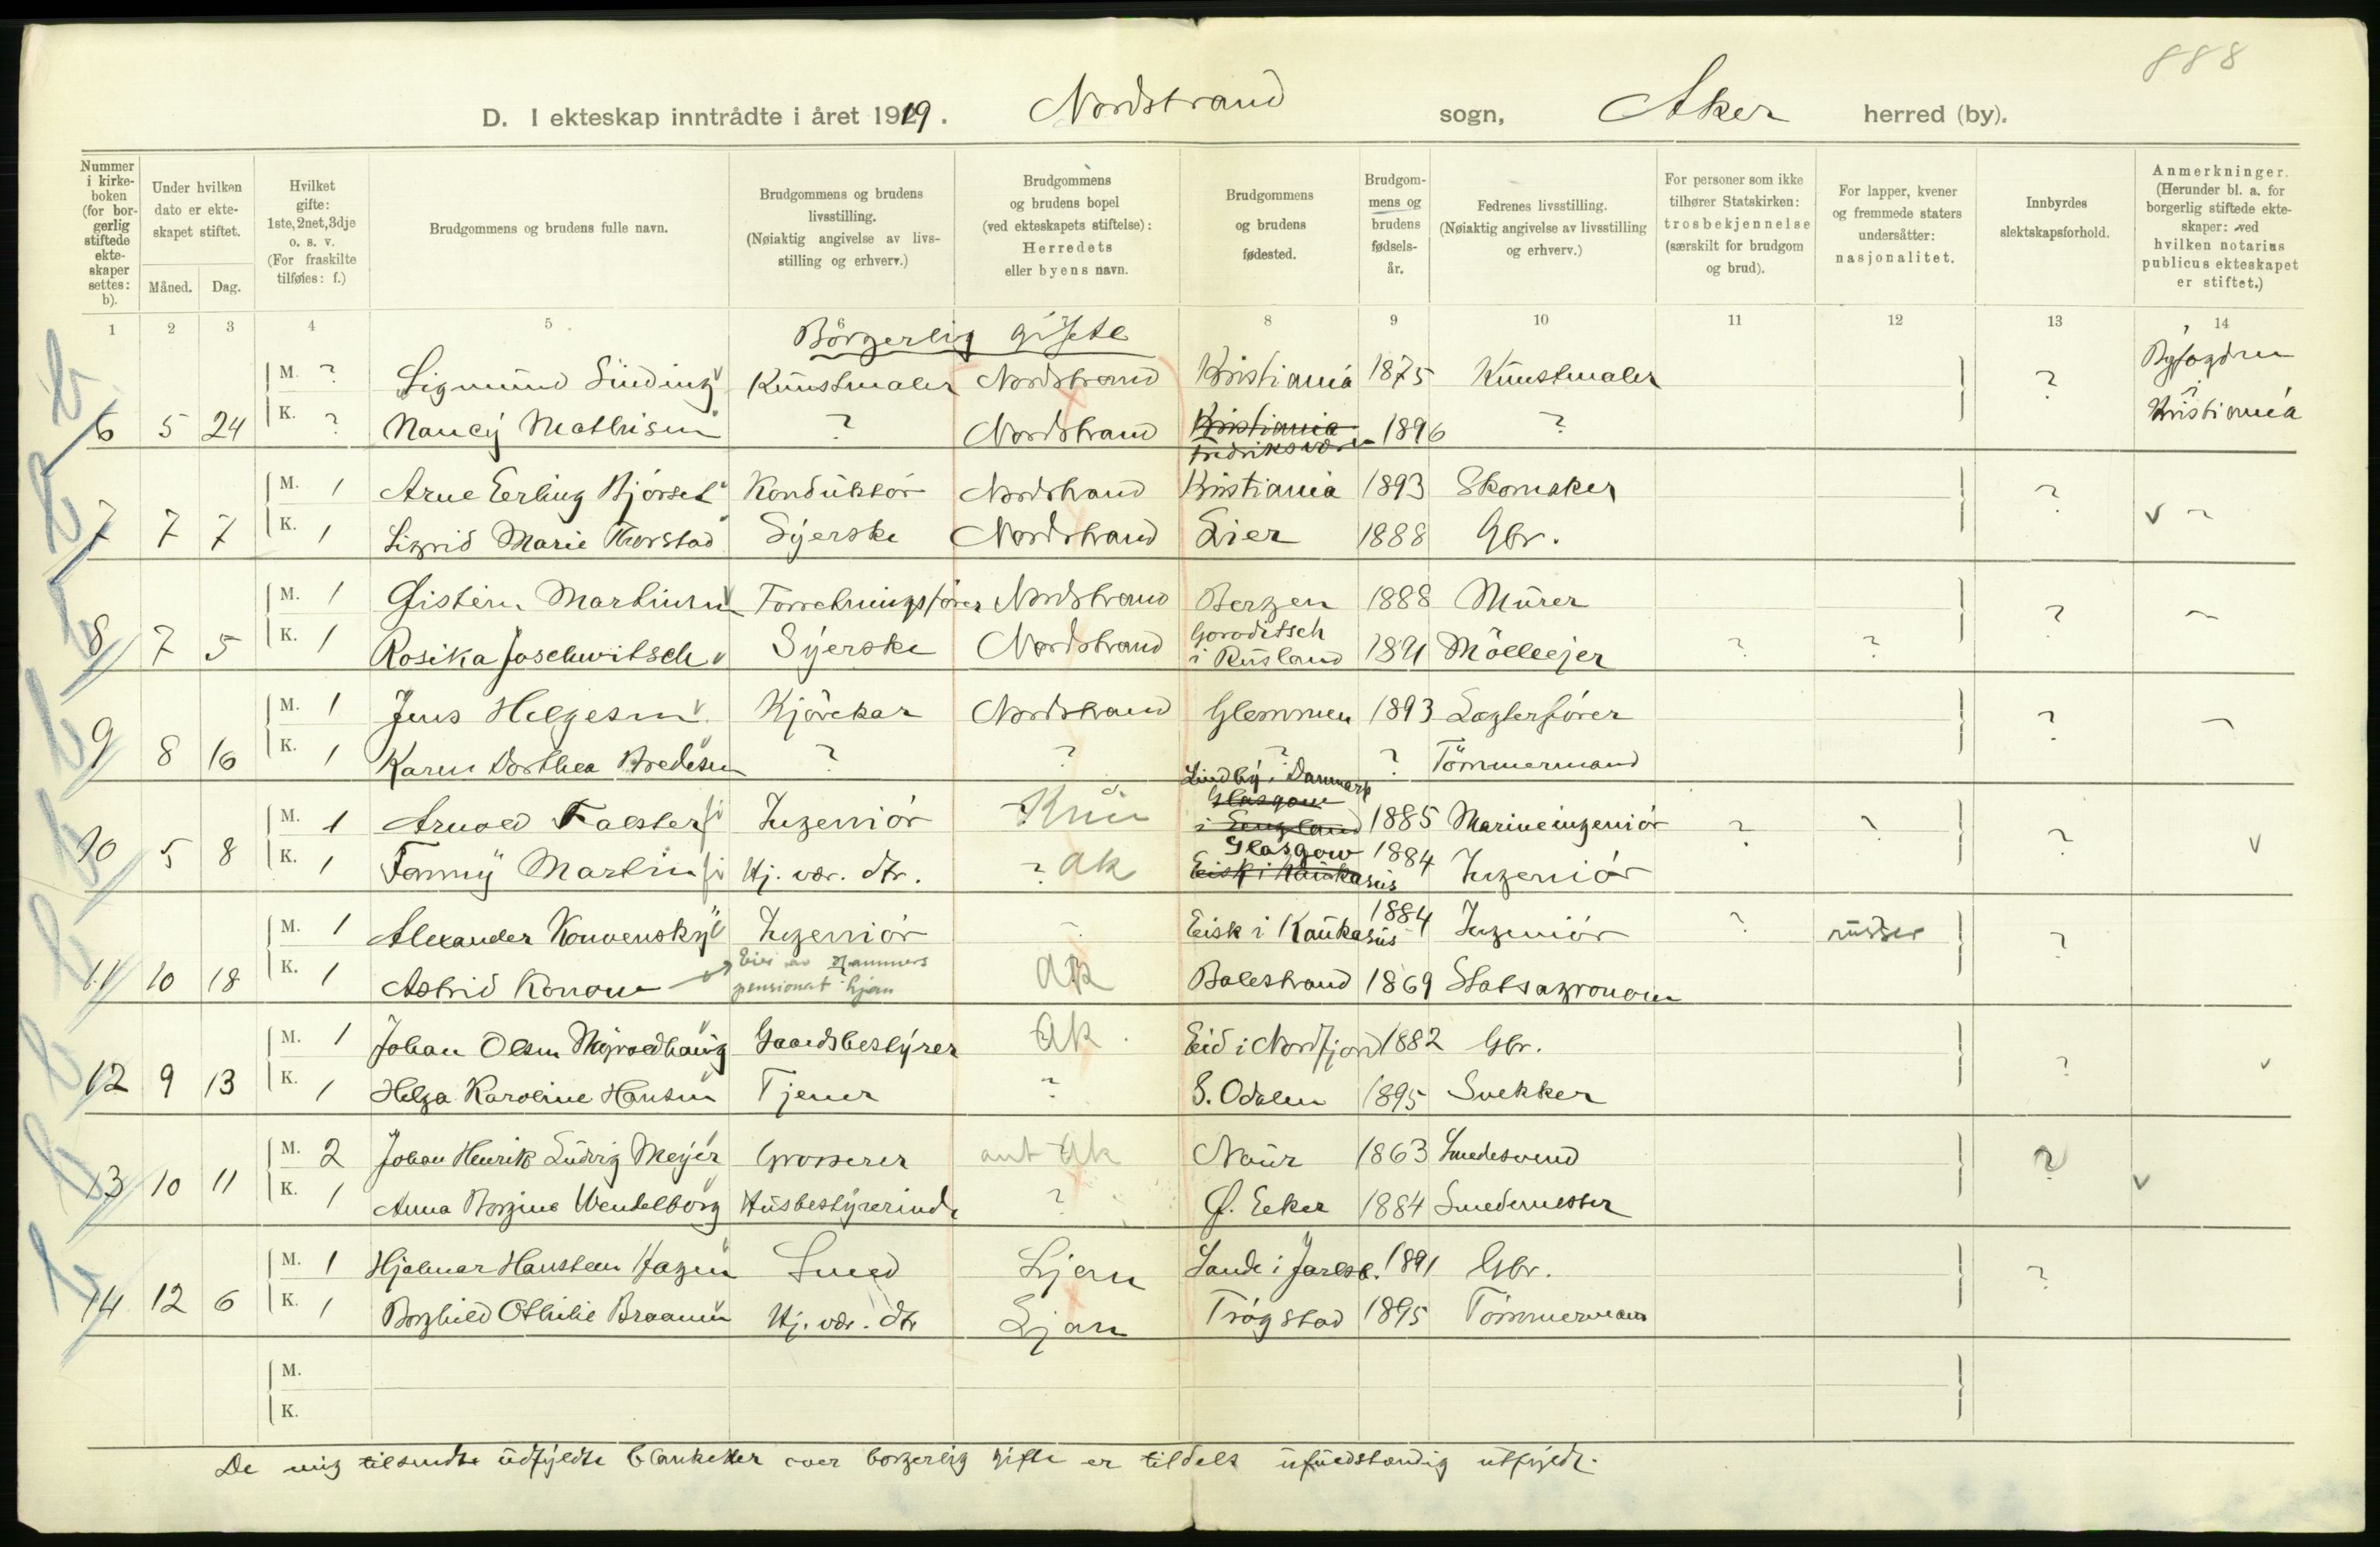 888
D. I ekteskap inntrådte i året 1919. Nordstrand sogn, Aker herred (by).
Nummer i kirke-boken (for bor-gerlig stiftede ekte-skaper settes: b).
Under hvilken dato er ekte-skapet stiftet.
Måned. Dag.
Hvilket gifte: 1ste, 2net, 3dje o. s. v. (For fraskilte tilføies: f.)
Brudgommens og brudens fulle navn.
Brudgommens og brudens livsstilling. (Nøiaktig angivelse av livs-stilling og erhverv.)
Brudgommens og brudens bopel (ved ekteskapets stiftelse): Herredets eller byens navn.
Brudgommens og brudens fødested.
Brudgom-mens og brudens fødsels-år.
Fedrenes livsstilling. (Nøiaktig angivelse av livsstilling og erhverv.)
For personer som ikke tilhører Statskirken: trosbekjennelse (særskilt for brudgom og brud).
For lapper, kvener og fremmede staters undersåtter: nasjonalitet.
Innbyrdes slektskapsforhold.
Anmerkninger. (Herunder bl. a. for borgerlig stiftede ekte-skaper: ved hvilken notarius publicus ekteskapet er stiftet.)
1 2 3 4 5 6 7 8 9 10 11 12 13 14
Börgerlig gifte
M. ? Sigmund Sinding Kunstmaler Nordstrand Kristiania 1875 Kunstmaler ? Byfogden i Kristiania
6 5 24 K. ? Nancy Mathisen ? Nordstrand Kristiania Fredriksværn 1896 ?
M. 1 Arne Erling Bjørset Konduktör Nordstrand Kristiania 1893 Skomaker ?
7 7 7 K. 1 Sigrid Marie Thorstad Syerske Nordstrand Lier 1888 Gbr.
M. 1 Martinsen Forretningsfører Nordstrand Bergen 1888 Murer ?
8 7 5 K. 1 Rosika Joschwitsch Syerske Nordstrand Goroditsch i Rusland 1891 Mölleejer ? ?
M. 1 Jens Helgesen Kjörekar Nordstrand Glemmen 1893 Lægterförer ?
9 8 16 K. 1 Karen Dorthea Bredesen ? ? ? ? Tömmermand
M. 1 Arnold Falster Ingeniör Lindby i Danmark Glasgow i England 1885 Marineingeniör ? ? ?
10 5 8 K. 1 Fanny Martin Hj. vær. dtr. ? Ak Glasgow Eisk i Kaukasus 1884 Ingeniör
M. 1 Alexander Konvensky Ingeniör Eisk i Kaukasus 1884 Ingeniör ? russer ?
11 10 18 K. 1 Astrid Konow Eier av Hammers pensionat Ljan Ak Balestrand 1869 Statsagronom
M. 1 Johan Olsen Gaardsbestyrer Ak Eid i Nordfjord 1882 Gbr. ?
12 9 13 K. 1 Helga Karoline Hansen Tjener ? S. Odalen 1895 Snekker
M. 2 Johan Henrik Ludvig Meyer Grosserer ant Ak Naur 1863 Smedesvend ?
13 10 11 K. 1 Anna Borgine Wendelborg Husbestyrerinde ? Ø. Eker 1884 Smedemester
M. 1 Hjalmar Hansteen Hagen Smed Ljan Sande i Jarlsb. 1891 Gbr. ?
14 12 6 K. 1 Borghild Othilie Braanen Hj. vær. dtr Ljan Trögstad 1895 Tömmermann
M.
K.
De mig tilsendte udfyldte blanketter over borgerlig gifte er tildels ufuldstændig utfyldt.